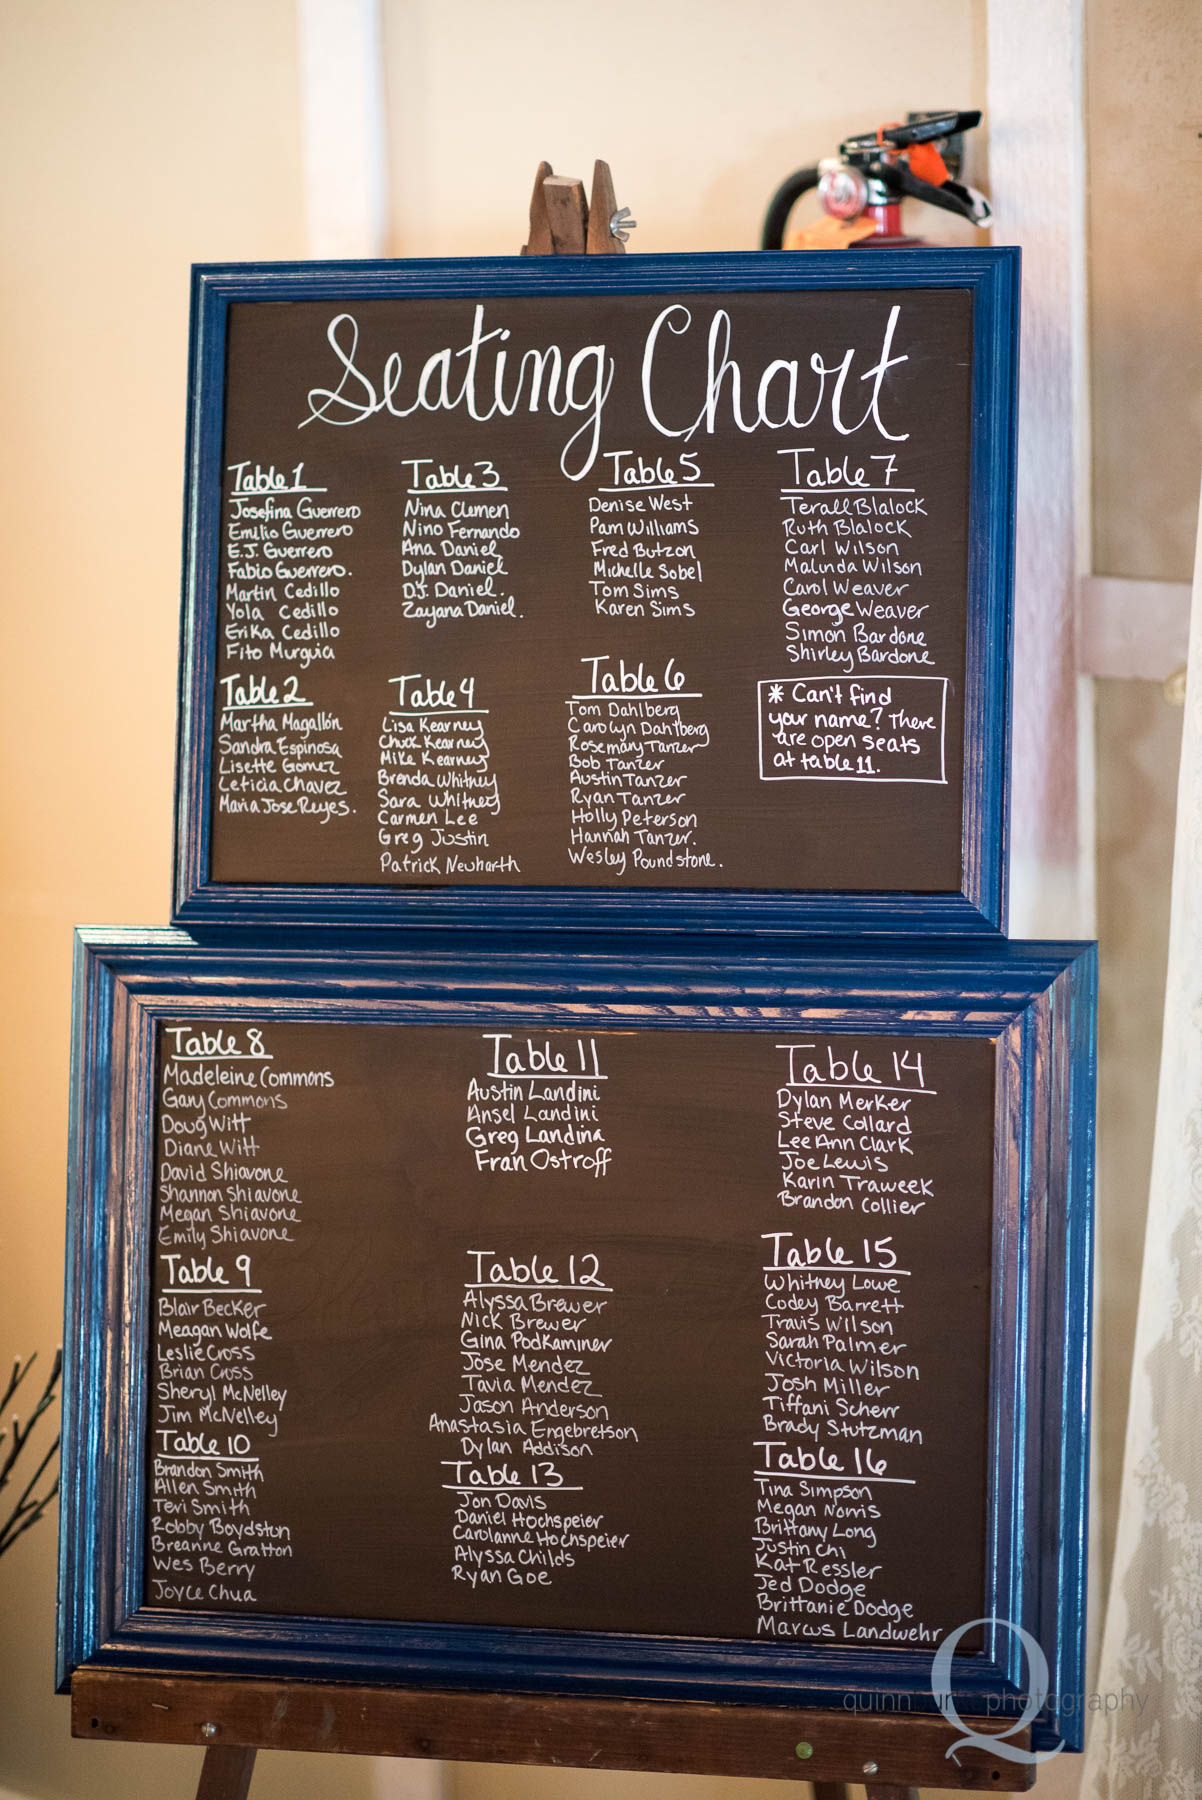 Seating Chart
Table 1
Josefina Guerrero
Emilio Guerrero
E.J. Guerrero
Fabio Guerrero.
Martin Cedillo
Yola Cedillo
Erika Cedillo
Fito Murguia
Table 2
Martha Magallón
Sandra Espinosa
Lisette Gomez
Leticia Chavez
Maria Jose Reyes.
Table 3
Nina Clemen
Nino Fernando
Ana Daniel
Dylan Daniel
D.J. Daniel.
Zayana Daniel.
Table 4
Lisa Kearney
Chuck Kearney
Mike Kearney
Brenda Whitney
Sara Whitney
Carmen Lee
Greg Justin
Patrick Neuharth
Table 5
Denise West
Pam Williams
Fred Butzon
Michelle Sobel
Tom Sims
Karen Sims
Table 6
Tom Dahlberg
Carolyn Dahlberg
Rosemary Tanzer
Bob Tanzer
Austin Tanzer
Ryan Tanzer
Holly Peterson
Hannah Tanzer.
Wesley Poundstone.
Table 7
Terall Blalock
Ruth Blalock
Carl Wilson
Malinda Wilson
Carol Weaver
George Weaver
Simon Bardone
Shirley Bardone
* Can't find
your name? There
are open seats
at table 11.
Table 8
Madeleine Commons
Gary Commons
Doug Witt
Diane Witt
David Shiavone
Shannon Shiavone
Megan Shiavone
Emily Shiavone
Table 9
Blair Becker
Meagan Wolfe
Leslie Cross
Brian Cross
Sheryl McNelley
Jim McNelley
Table 10
Brandon Smith
Allen Smith
Teri Smith
Robby Boydston
Breanne Gratton
Wes Berry
Joyce Chua
Table 11
Austin Landini
Ansel Landini
Greg Landina
Fran Ostroff
Table 12
Alyssa Brewer
Nick Brewer
Gina Podkaminer
Jose Mendez
Tavia Mendez
Jason Anderson
Anastasia Engebretson
Dylan Addison
Table 13
Jon Davis
Daniel Hochspeier
Carolanne Hochspeier
Alyssa Childs
Ryan Goe
Table 14
Dylan Merker
Steve Collard
Lee Ann Clark
Joe Lewis
Karin Traweek
Brandon Collier
Table 15
Whitney Lowe
Codey Barrett
Travis Wilson
Sarah Palmer
Victoria Wilson
Josh Miller
Tiffani Scherr
Brady Stutzman
Table 16
Tina Simpson
Megan Norris
Brittany Long
Justin Chi
Kat Ressler
Jed Dodge
Brittanie Dodge
Marcus Landwehr
Q
photography